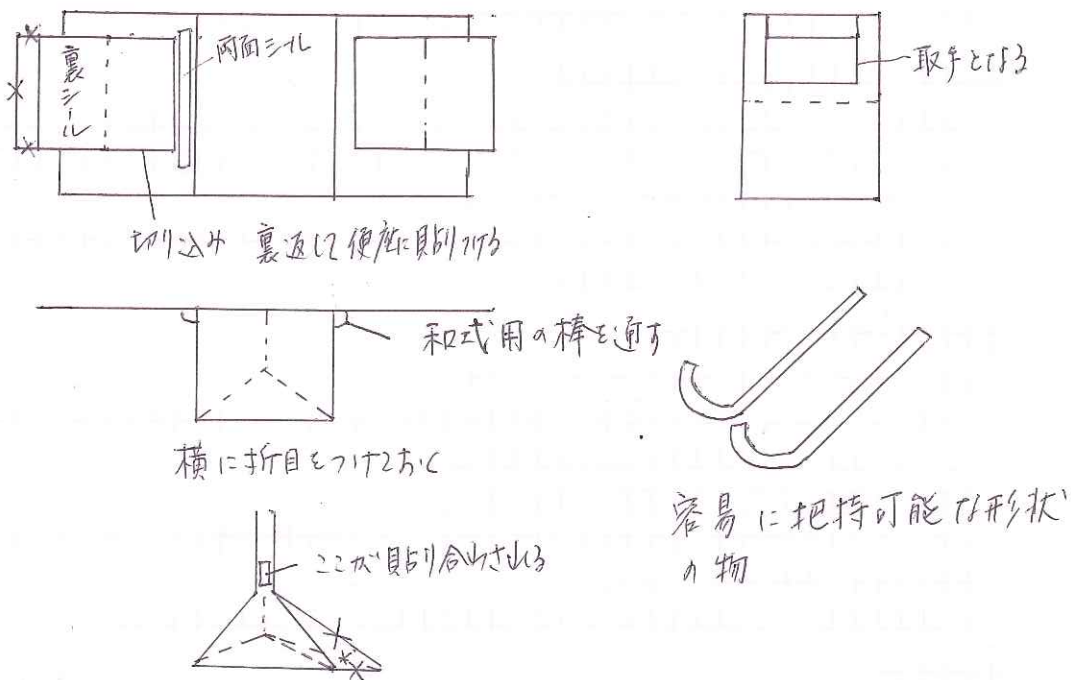 裏シール
両面シール
取手となる
切り込み 裏返して便座に貼りつける
和式用の棒を通す
横に折目をつけておく
ここが貼り合わされる
容易に把持可能な形状
の物